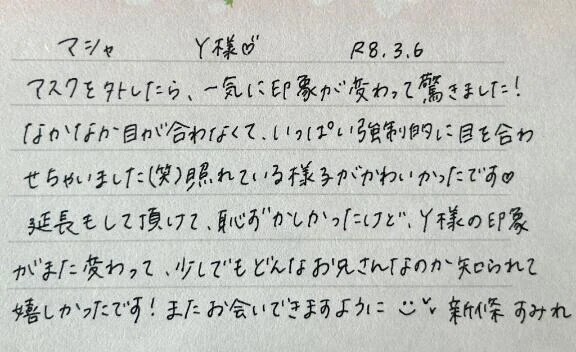 マシャ Y様♡ R8.3.6
マスクを外したら、一気に印象が変わって驚きました!
なかなか目が合わなくて、いっぱい強制的に目を合わ
せちゃいました(笑)照れている様子がかわいかったです♡
延長もして頂けて、恥ずかしかったけど、Y様の印象
がまた変わって、少しでもどんなお兄さんなのか知られて
嬉しかったです!またお会いできますように 新條 すみれ